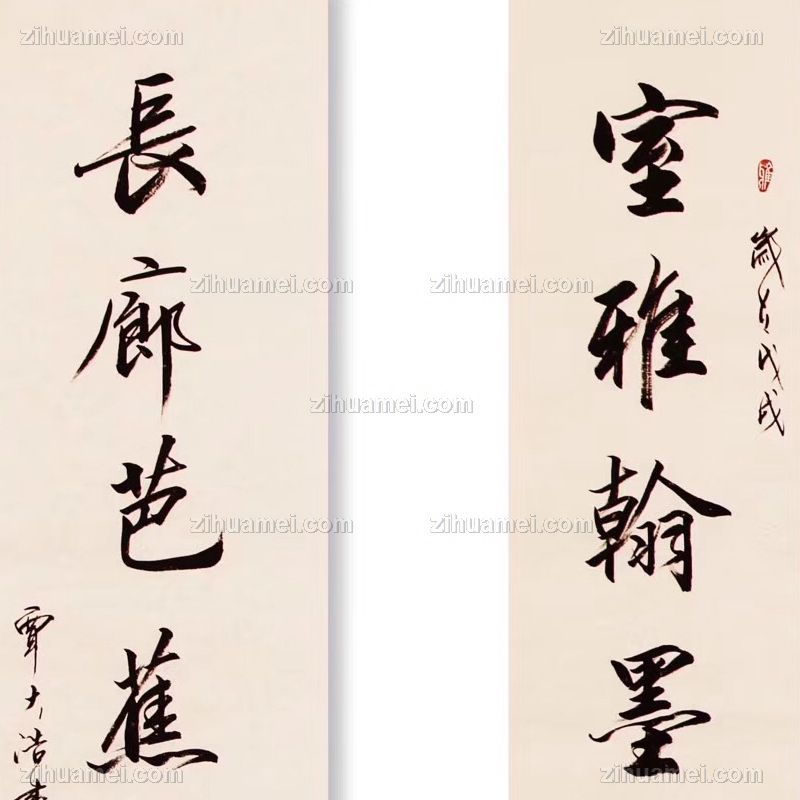 歲在戊戌
室雅翰墨
長廊芭蕉
覃大浩書
zihuamei.com zihuamei.com zihuamei.com
zihuamei.com zihuamei.com
zihuamei.com
zihuamei.com zihuamei.com
zihuamei.com zihuamei.com zihuamei.com